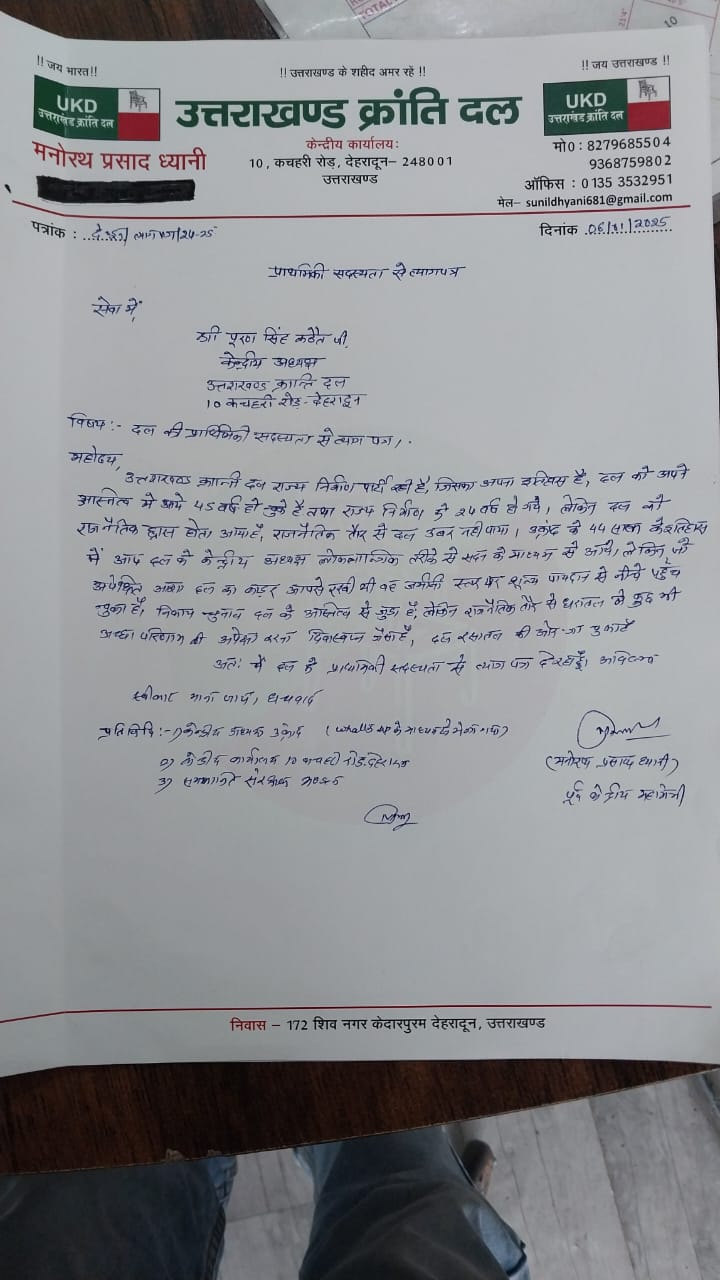 !! जय भारत!!
!! उत्तराखण्ड के शहीद अमर रहें !!
!! जय उत्तराखण्ड !!
UKD
उत्तराखंड क्रांति दल
उत्तराखण्ड क्रांति दल
UKD
उत्तराखंड क्रांति दल
मनोरथ प्रसाद ध्यानी
केन्द्रीय कार्यालयः
10, कचहरी रोड़, देहरादून– 248001
उत्तराखण्ड
मो0 : 8279685504
9368759802
ऑफिस : 0135 3532951
मेल– sunildhyani681@gmail.com
पत्रांक : 24-25
दिनांक 06/01/2025
प्राथमिकी सदस्यता से त्यागपत्र
सेवा में,
श्री पूरण सिंह कठैत जी,
केन्द्रीय अध्यक्ष
उत्तराखण्ड क्रान्ति दल
10 कचहरी रोड़- देहरादून
विषय:- दल की प्राथमिकी सदस्यता से त्याग पत्र।
महोदय,
उत्तराखण्ड क्रान्ती दल राज्य निर्माण पार्टी रही है, जिसका अपना इतिहास है, दल को अपने
आस्तित्व में आये 45 वर्ष हो चुके है तथा राज्य निर्माण को 24 वर्ष हो गये, लेकिन दल की
राजनैतिक ह्रास होता आया है, राजनैतिक तौर से दल उबर नहीं पाया। उक्रांद के 44 साल के इतिहास
में आप दल के केन्द्रीय अध्यक्ष लोकतान्त्रिक तरीके से सदन के माध्यम से आये, लेकिन जो
अपेक्षित आशा दल का कैडर आपसे रखी थी वह जमीनी स्तर पर शून्य पायदान से नीचे पहुँच
चुका है, निकाय चुनाव दल के आस्तित्व से जुड़ा है, लेकिन राजनैतिक तौर से धरातल में कुछ भी
अच्छा परिणाम की अपेक्षा करना दिवास्वप्न जैसा है, दल रसातल की ओर जा चुका है
अतः में दल के प्राथमिकी सदस्यता से त्याग पत्र दे रहा हूँ। अविलम्ब
स्वीकार माना जाय, धन्यवाद
प्रतिलिपि:-1) केन्द्रीय अध्यक्ष उक्रांद (whatsup के माध्यम से भेजा गया)
2) केन्द्रीय कार्यालय 10 कचहरी रोड़ देहरादून
3) संरक्षक
(मनोरथ प्रसाद ध्यानी)
पूर्व केन्द्रीय महामंत्री
निवास – 172 शिव नगर केदारपुरम देहरादून, उत्तराखण्ड